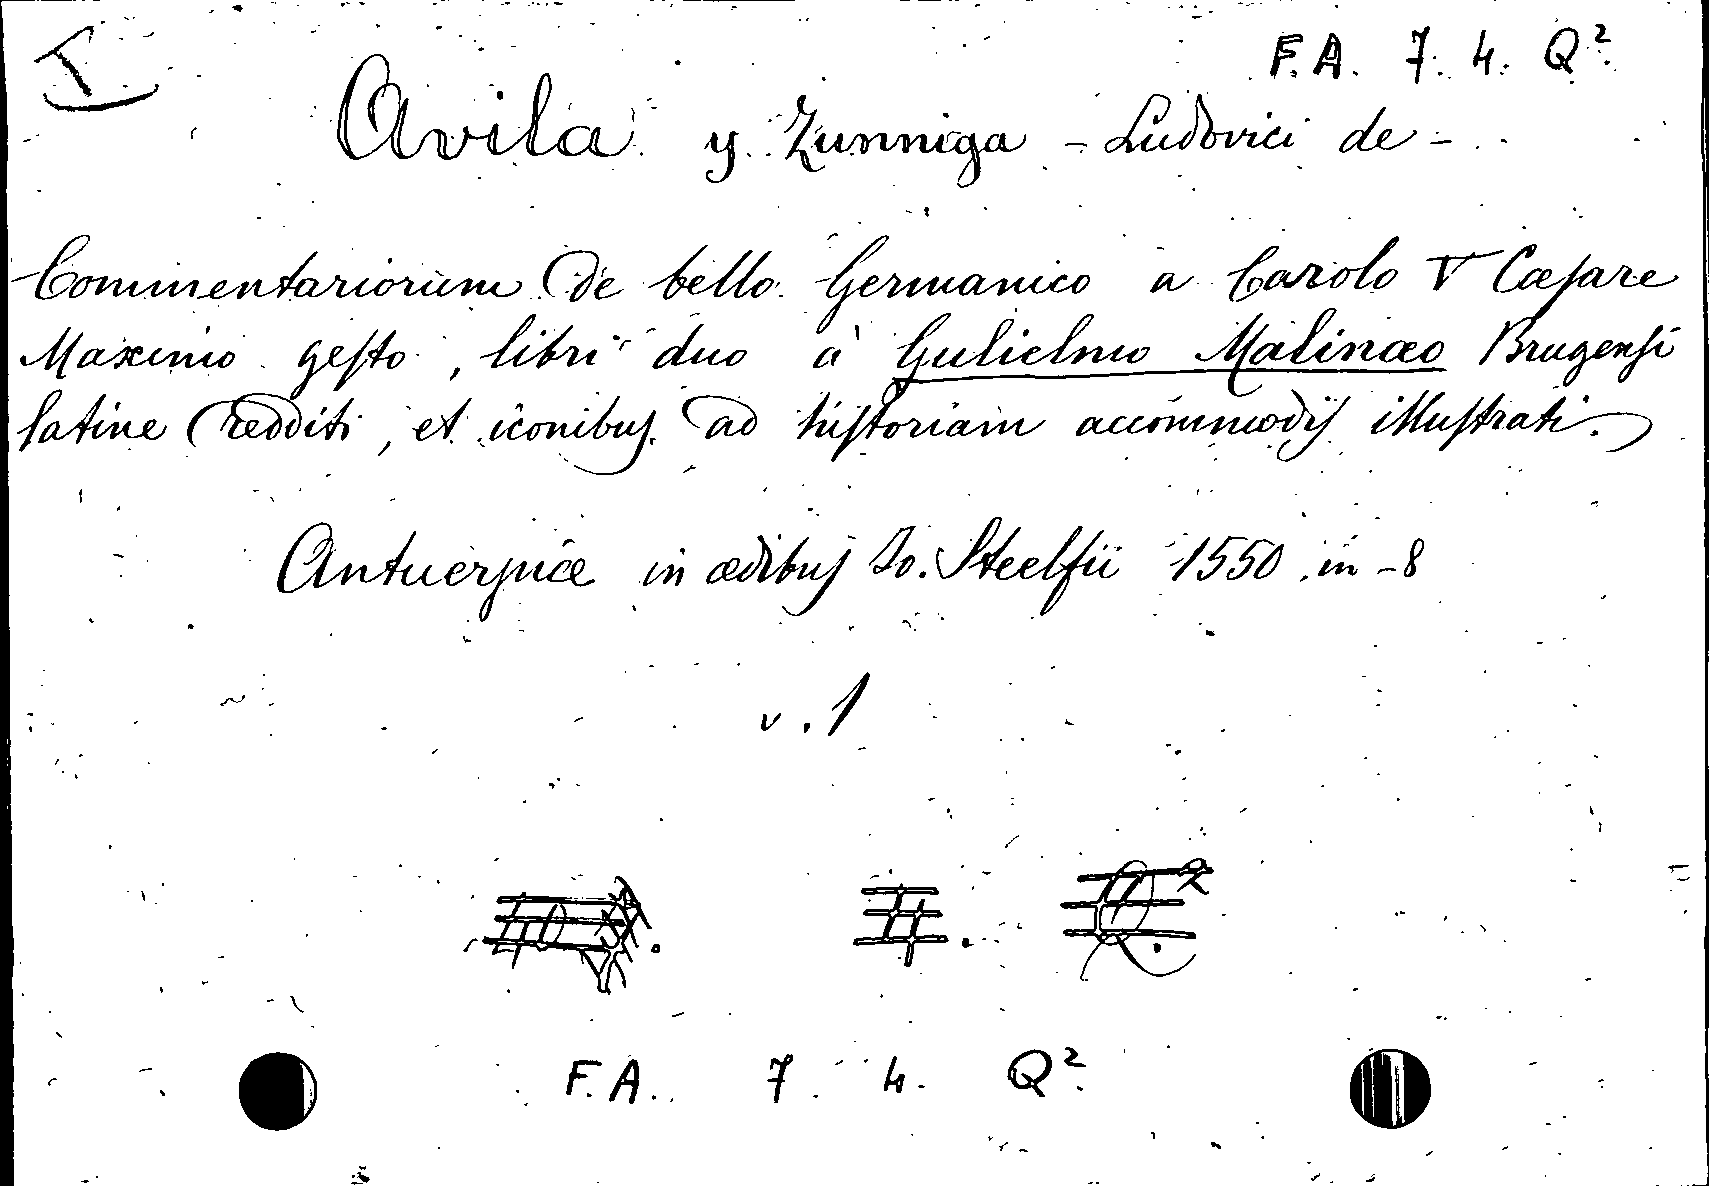 F.A. 7. 4. Q²
Avila y Zunniga - Ludovici de -
Commentariorum de bello Germanico a Carolo V Cæsare
Maximo gesto, libri duo à Gulielmo Malinæo Brugensi
latine redditi, et iconibus ad historiam accommodis illustrati.
Antuerpiæ in ædibus Io. Steelsii 1550 in-8
v. 1
F.A. 7. 4. Q²